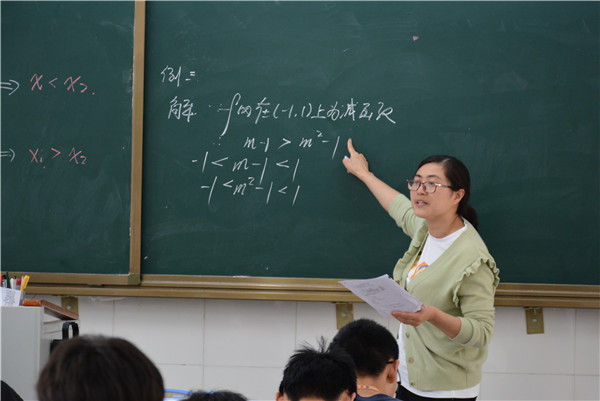 ⇒ x₁ < x₂.
⇒ x₁ > x₂
例二
解: ∵ f(x)在(-1,1)上为减函数
∴ m-1 > m²-1
-1 < m-1 < 1
-1 < m²-1 < 1